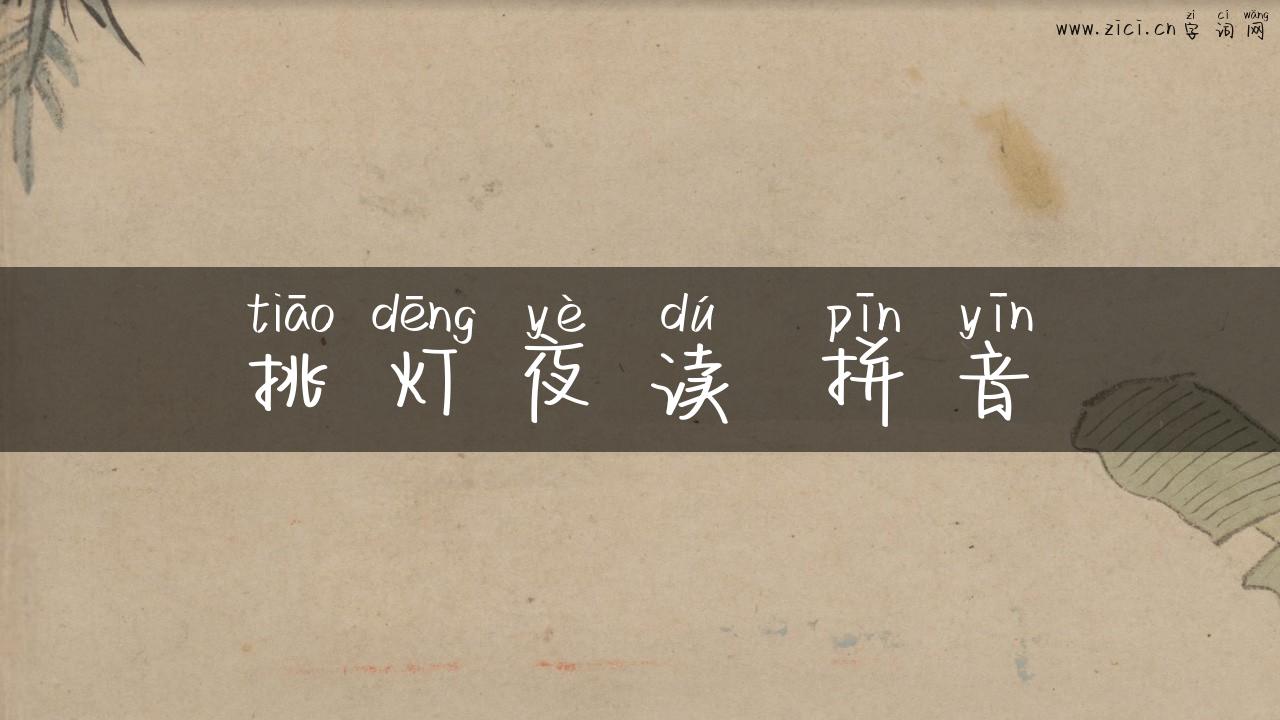 zì cí wǎng
www.zici.cn 字词网
tiāo dēng yè dú pīn yīn
挑灯夜读 拼音